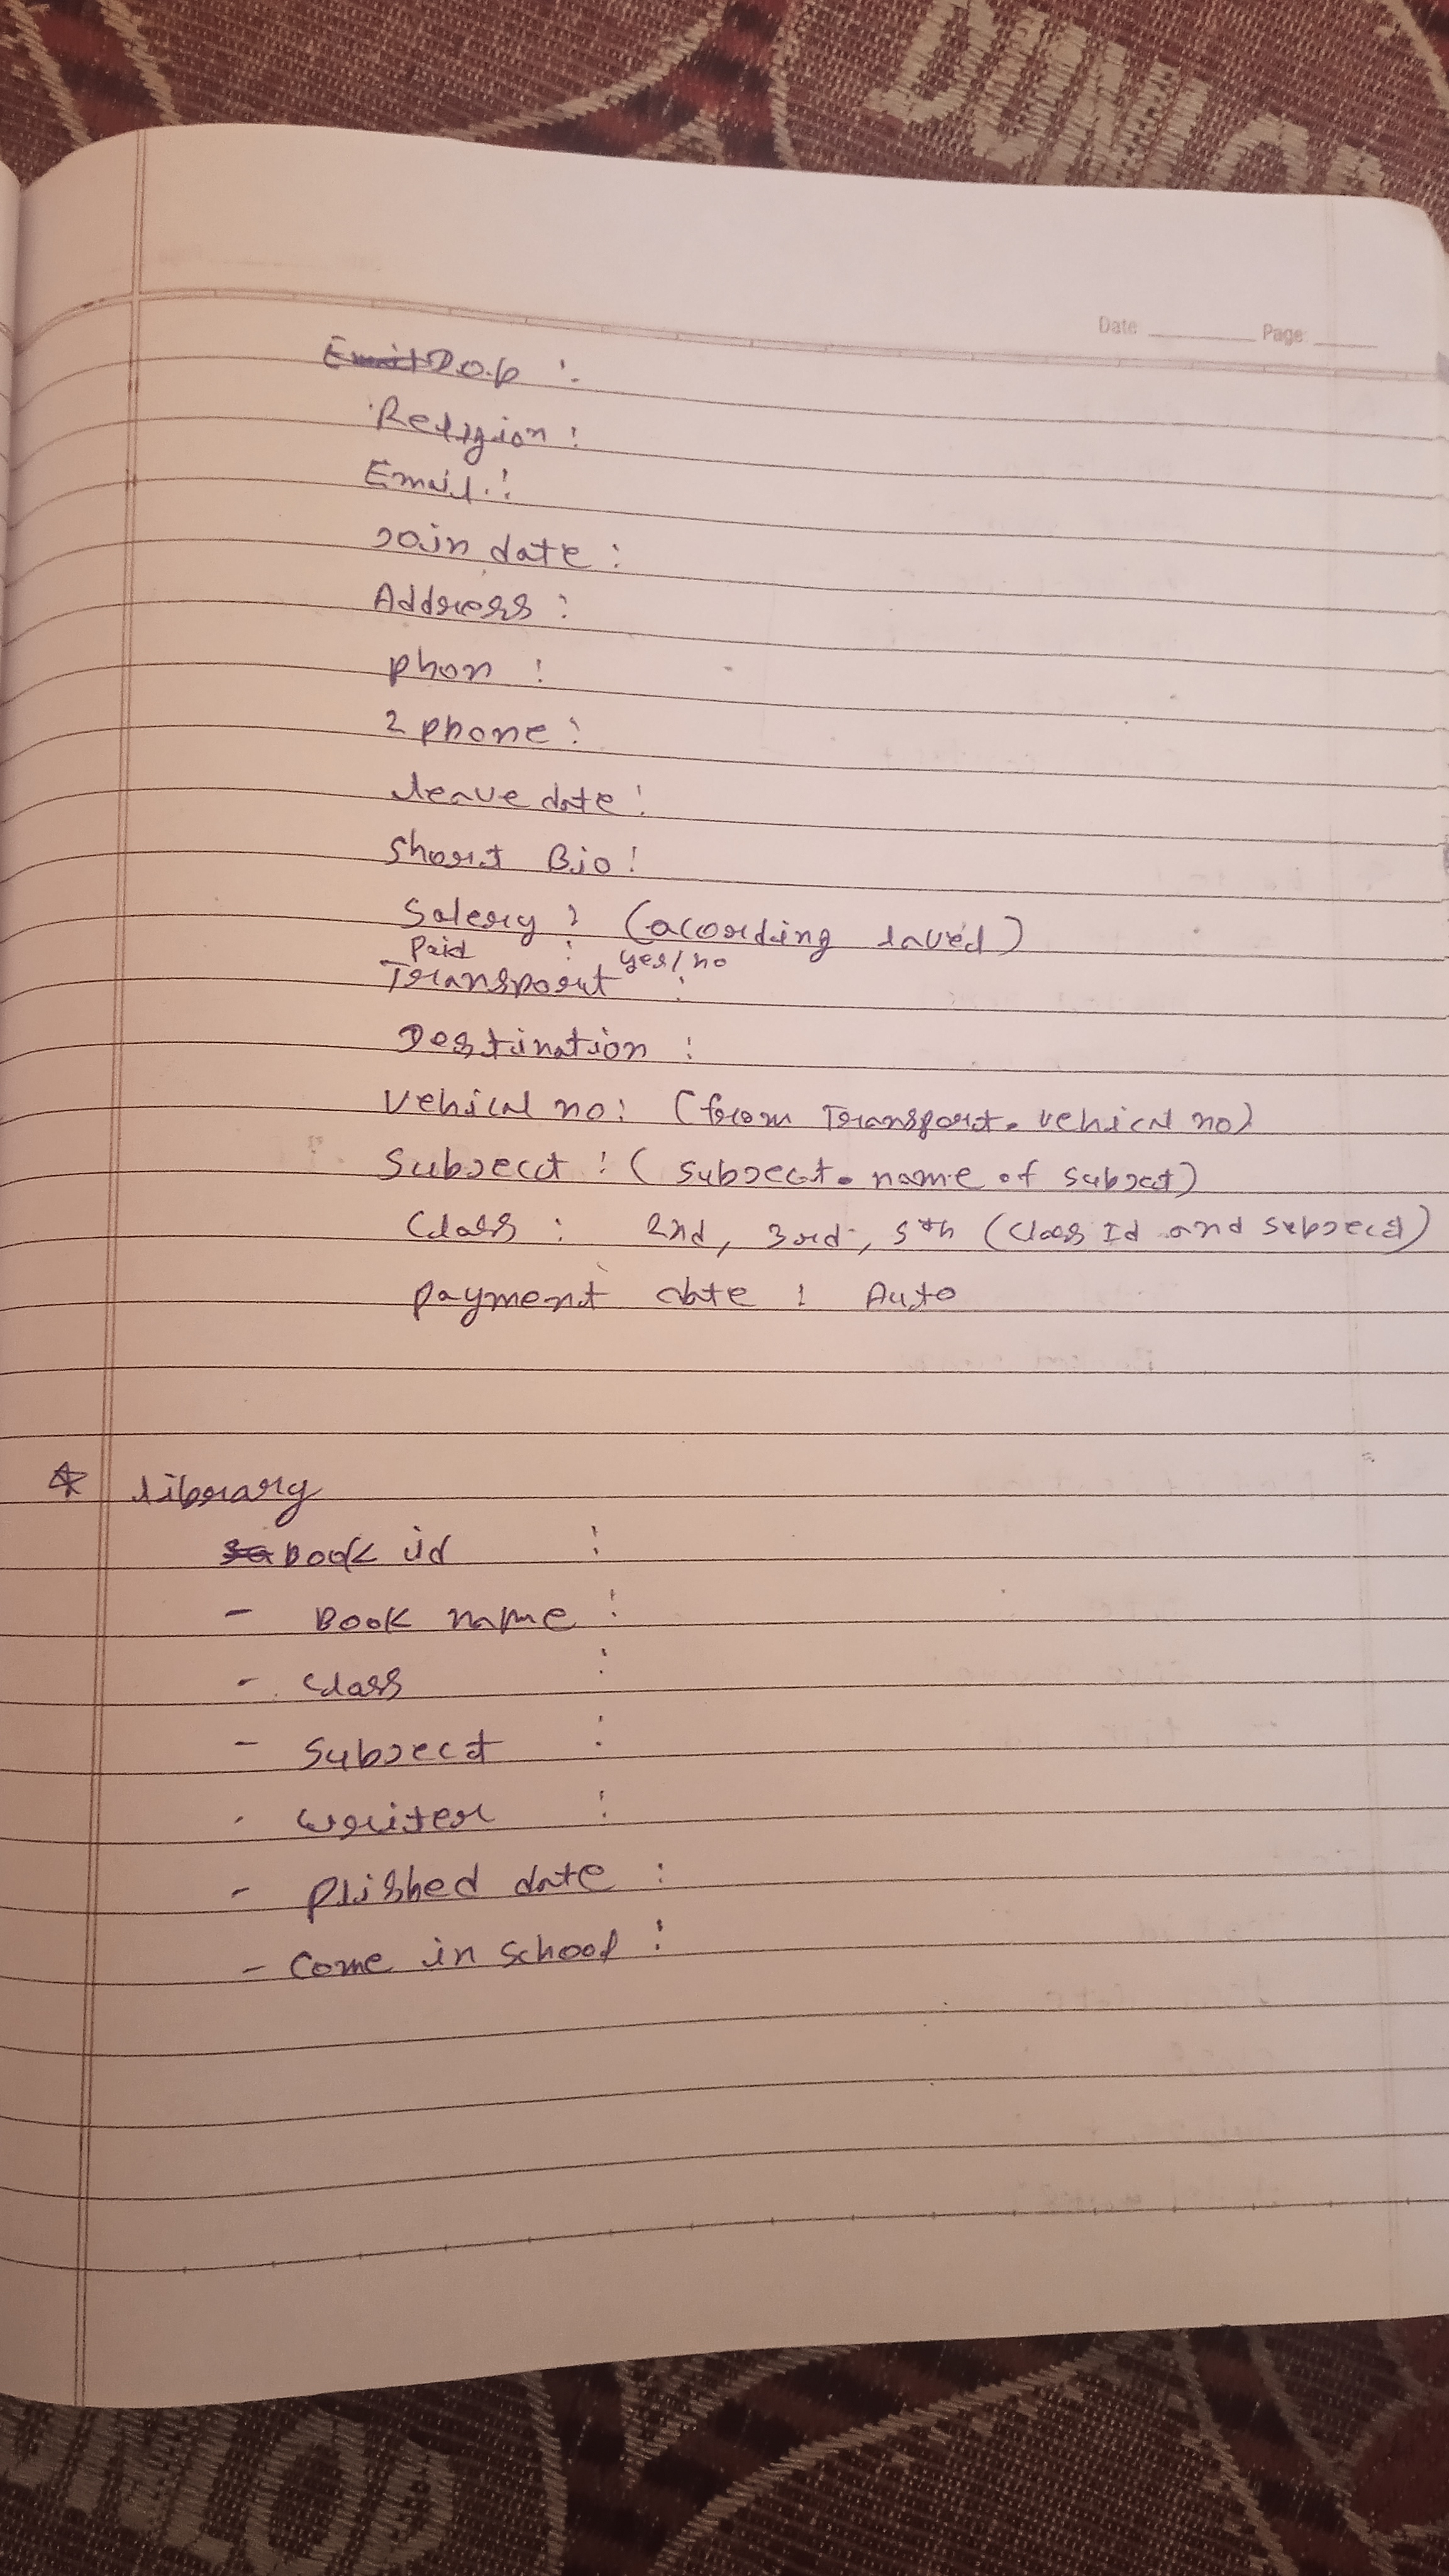 DUNLOP
Date Page
D.o.b :
Religion :
Email :
Join date :
Address :
phon :
2 phone :
leave date :
Short Bio :
Salery : (acording laved)
Paid : yes/no
Transport :
Destination :
Vehical no: (from Transport. vehical no)
Subject : (Subject. name of subject)
Class : 2nd, 3rd, 5th (Class Id and subject)
payment date : Auto
☆ library
Book id :
- Book name :
- Class :
- Subject :
- writer :
- Plished date :
- Come in school :
DUNLOP